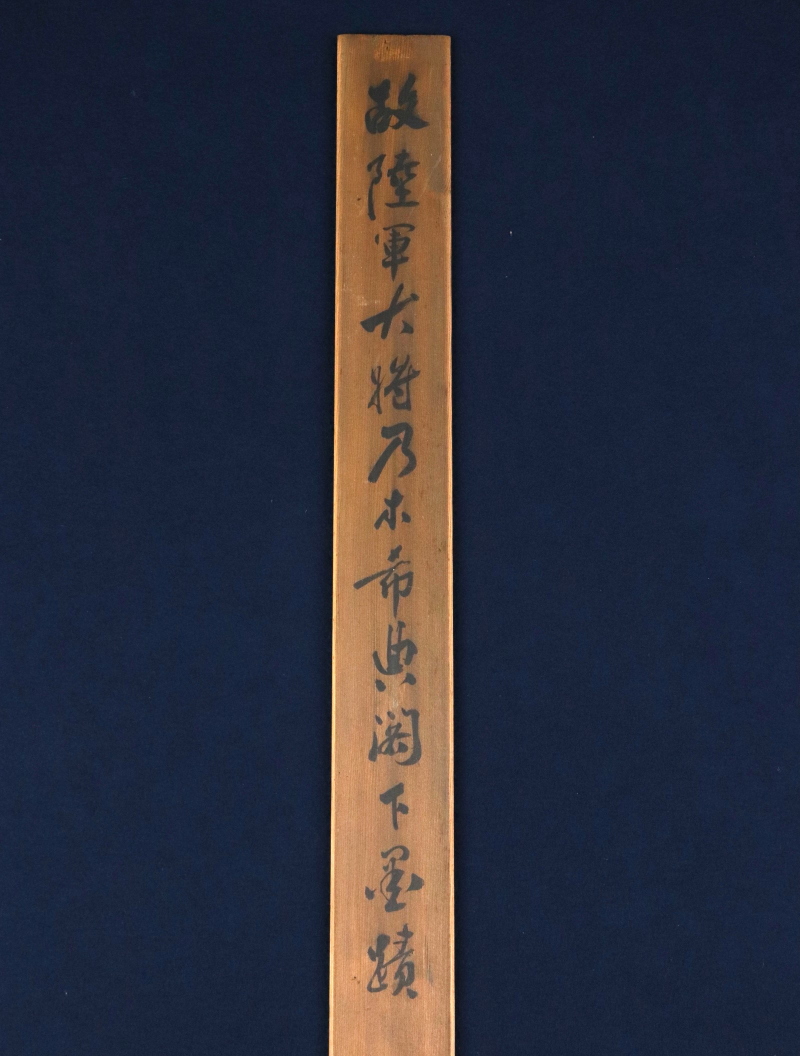 故陸軍大将乃木希典閣下墨蹟